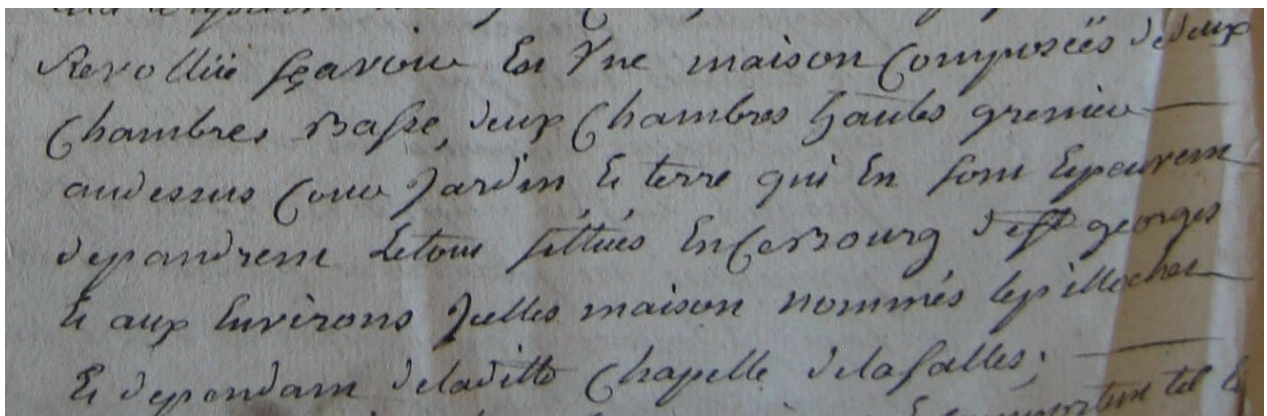 Revollüe sçavoir En Vne maison Composéés dedeux
Chambres Basse, deux Chambres hautes grenier
audessus Cour Jardin Et terre qui En sont Epeuvent
depandrent Letout sittués EnceBourg de st georges
Et aux Environs Jcelles maison nommés lepillocher
Et dependam deladitte Chapelle delasalles;